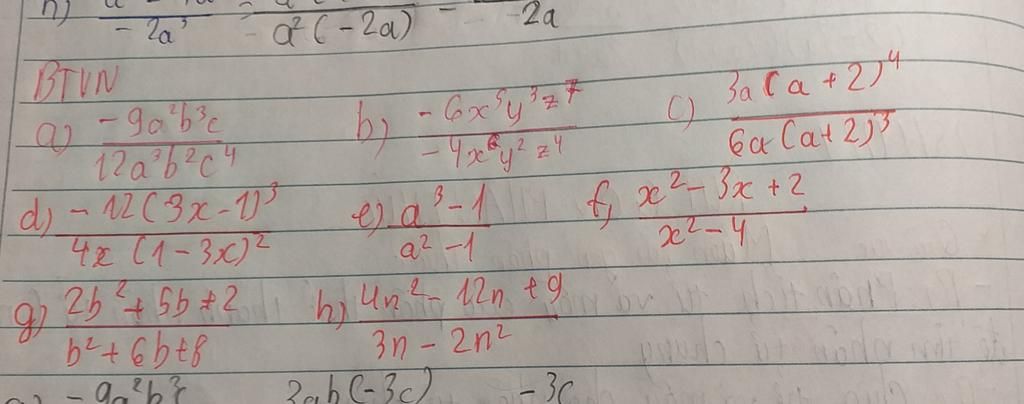 - 2a³ a²(-2a) -2a
BTVN
a) -9a²b³c / 12a³b²c⁴ b) -6x⁵y³z⁷ / -4x⁶y²z⁴ c) 3a(a+2)⁴ / 6a(a+2)³
d) -12(3x-1)³ / 4x(1-3x)² e) a³-1 / a²-1 f, x²-3x+2 / x²-4
g) 2b²+5b+2 / b²+6b+8 h) 4n²-12n+9 / 3n-2n²
-9a²b³c 3ab(-3c) -3c